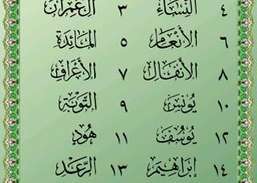 ٣ اٰلِ عِمْرَان ٤ النِّسَاء
٥ المَائِدَة ٦ الأَنْعَام
٧ الأَعْرَاف ٨ الأَنْفَال
٩ التَّوْبَة ١٠ يُونُس
١١ هُود ١٢ يُوسُف
١٣ الرَّعْد ١٤ إِبْرَاهِيم